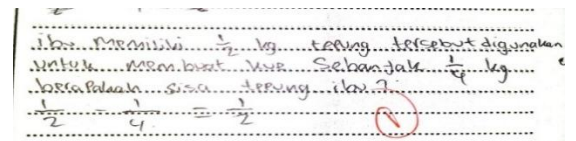 ibu memiliki 1/2 kg tepung tersebut digunakan
untuk membuat kue sebanyak 1/4 kg
berapakah sisa tepung ibu?
1/2 - 1/4 = 1/2